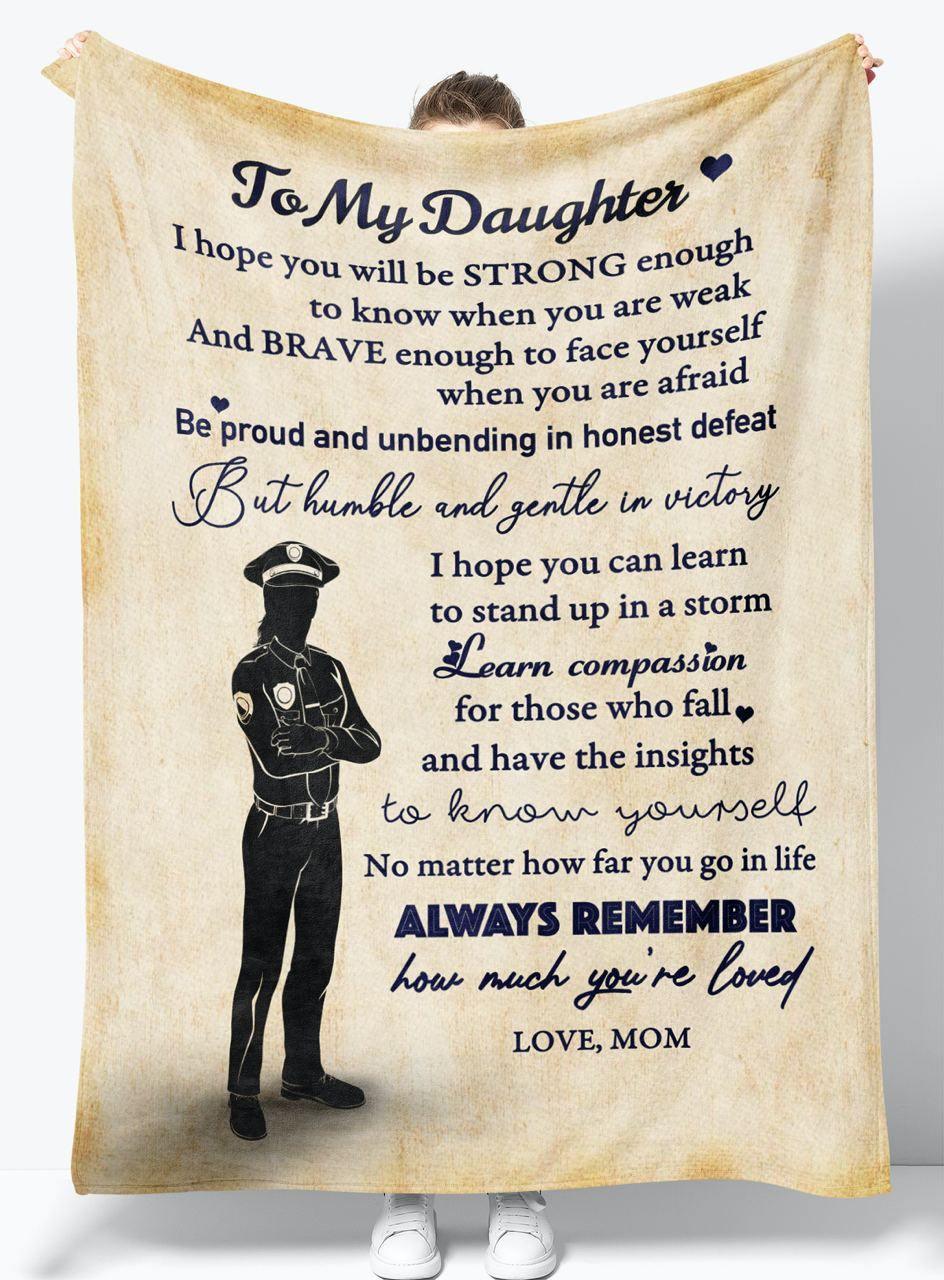 To My Daughter
I hope you will be STRONG enough
to know when you are weak
And BRAVE enough to face yourself
when you are afraid
Be proud and unbending in honest defeat
But humble and gentle in victory
I hope you can learn
to stand up in a storm
Learn compassion
for those who fall
and have the insights
to know yourself
No matter how far you go in life
ALWAYS REMEMBER
how much you're loved
LOVE, MOM